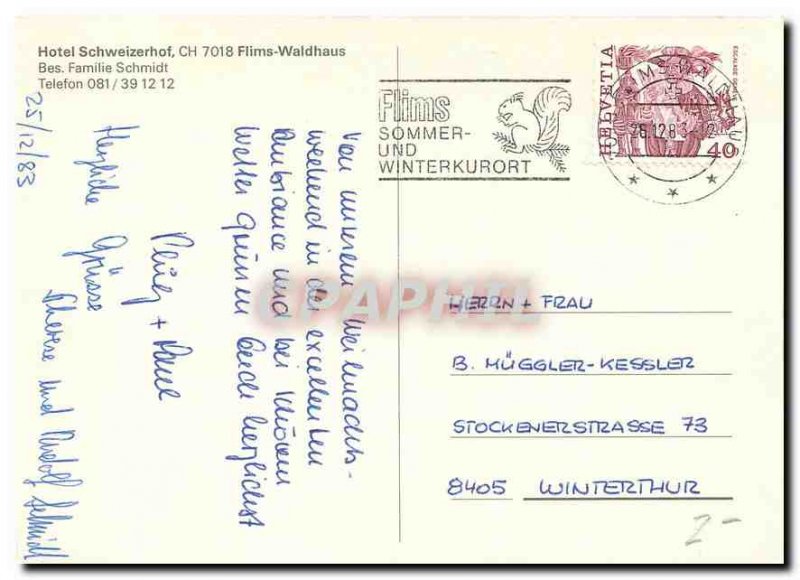 Hotel Schweizerhof, CH 7018 Flims-Waldhaus
Bes. Familie Schmidt
Telefon 081/39 12 12
Flims
SOMMER-
UND
WINTERKURORT
HELVETIA
40
25/12/83
Von unserem Weihnachts-
weekend in der excellenten
Ambiance und bei schönem
Wetter grüssen Euch herzlichst
+
Herzliche Grüsse
Therese und Rudolf Schmidt
HERRN + FRAU
B. MÜGGLER-KESSLER
STOCKENERSTRASSE 73
8405 WINTERTHUR
2-
CPAPHIL